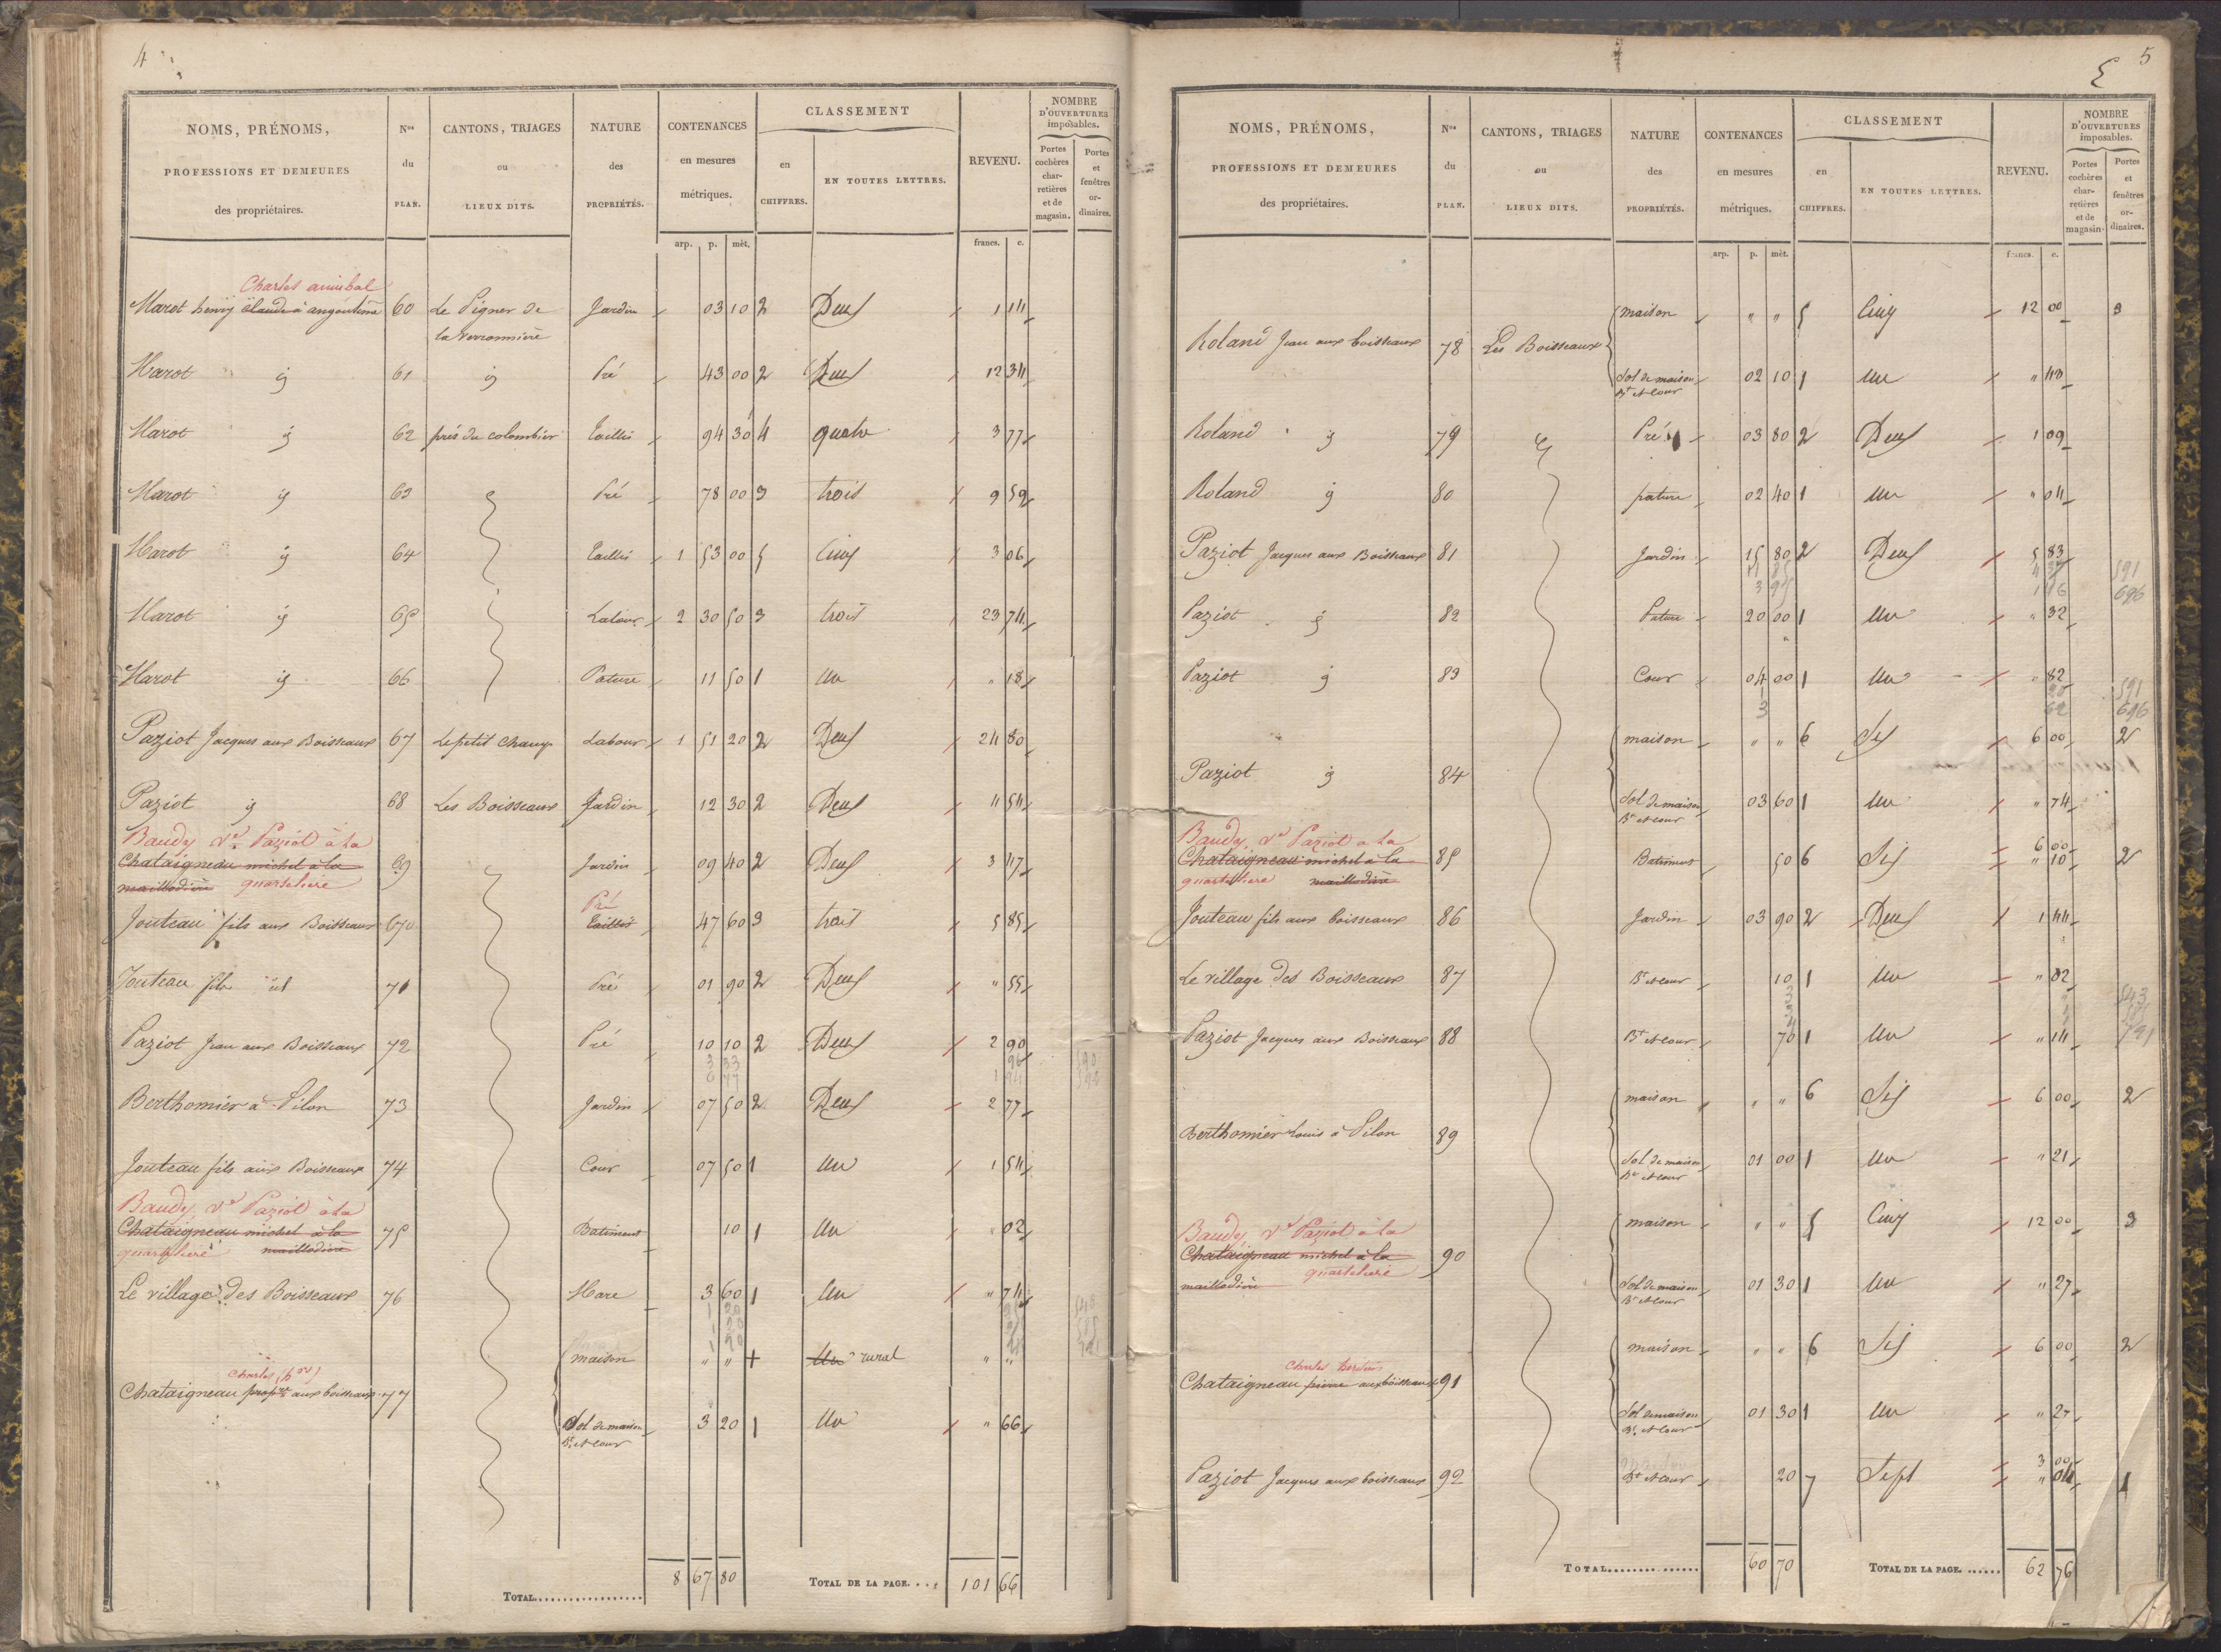 4
NOMS, PRÉNOMS, PROFESSIONS ET DEMEURES des propriétaires. Nos du PLAN. CANTONS, TRIAGES ou LIEUX DITS. NATURE des PROPRIÉTÉS. CONTENANCES en mesures métriques. CLASSEMENT en CHIFFRES. EN TOUTES LETTRES. REVENU. NOMBRE D'OUVERTURES imposables. Portes cochères charretières et de magasin. Portes et fenêtres ordinaires.
arp. p. mèt. francs. c.
Charles annibal
Marot henry claude à angoulême 60 Le Pigner de Jardin 03 10 2 Deux 1 14
la Verronnière
Marot id 61 id Pré 43 00 2 Deux 12 34
Marot id 62 près du colombier Taillis 94 30 4 quatre 3 77
Marot id 63 Pré 78 00 3 trois 9 59
Marot id 64 Taillis 1 53 00 5 Cinq 3 06
Marot id 65 Labour 2 30 50 3 trois 23 74
Marot id 66 Pature 11 50 1 Un " 18
Paziot Jacques aux Boisseaux 67 Le petit Champ Labour 1 51 20 2 Deux 24 80
Paziot id 68 Les Boisseaux Jardin 12 30 2 Deux 4 54
Baudy Ve Paziot à la
Chataigneau michel à la 69 Jardin 09 40 2 Deux 3 47
maillodière quartelière
Pré
Jouteau fils aux Boisseaux 70 Taillis 47 60 3 trois 5 85
Jouteau fils id 71 Pré 01 90 2 Deux " 55
Paziot Jean aux Boisseaux 72 Pré 10 10 2 Deux 2 90
3 33 96 590
6 77 1 94 593
Berthomier à Pilon 73 Jardin 07 50 2 Deux 2 77
Jouteau fils aux Boisseaux 74 Cour 07 50 1 Un 1 54
Baudy Ve Paziot à la
Chataigneau michel à la 75 Batiment 10 1 Un " 02
quartelière maillodière
Le village des Boisseaux 76 Mare 3 60 1 Un " 74
1 20
1 20
1 20
maison " " + Un rural " "
Charles (pre)
Chataigneau propre aux boisseaux 77
Sol de maison 3 20 1 Un " 66
Bt et cour
TOTAL 8 67 80 TOTAL DE LA PAGE 101 66
5
NOMS, PRÉNOMS, PROFESSIONS ET DEMEURES des propriétaires. Nos du PLAN. CANTONS, TRIAGES ou LIEUX DITS. NATURE des PROPRIÉTÉS. CONTENANCES en mesures métriques. CLASSEMENT en CHIFFRES. EN TOUTES LETTRES. REVENU. NOMBRE D'OUVERTURES imposables. Portes cochères charretières et de magasin. Portes et fenêtres ordinaires.
arp. p. mèt. francs. c.
maison " " 5 Cinq 12 00 3
Roland Jean aux boisseaux 78 Les Boisseaux
Sol de maison 02 10 1 Un " 43
Bt et cour
Roland id 79 id Pré 03 80 2 Deux 1 09
Roland id 80 pature 02 40 1 Un " 04
Paziot Jacques aux Boisseaux 81 Jardin 15 80 2 Deux 5 83
11 85 4 37 591
3 95 1 46 696
Paziot id 82 Pature 20 00 1 Un " 32
Paziot id 83 Cour 04 00 1 Un " 82
1 20 591
3 62 696
maison " " 6 Six 6 00 2
Paziot id 84
Sol de maison 03 60 1 Un " 74
Bt et cour
Baudy, Ve Paziot a la
Chataigneau michel à la 85 Batiment 50 6 Six 6 00 " 10 2
quartelière maillodière
Jouteau fils aux boisseaux 86 Jardin 03 90 2 Deux 1 44
Le village des Boisseaux 87 Bt et cour 10 1 Un " 02
Paziot Jacques aux Boisseaux 88 Bt et cour 70 1 Un " 14
maison " " 6 Six 6 00 2
Berthomier Louis à Pilon 89
Sol de maison 01 00 1 Un " 21
Bt et cour
maison " " 5 Cinq 12 00 3
Baudy Ve Paziot à la
Chataigneau michel à la 90
maillodière quartelière
Sol de maison 01 30 1 Un " 27
Bt et cour
maison " " 6 Six 6 00 2
Charles
Chataigneau pierre aux boisseaux 91
Sol de maison 01 30 1 Un " 27
Bt et cour
Paziot Jacques aux boisseaux 92 Bt et cour 20 7 Sept 3 00 " 04 1
TOTAL 60 70 TOTAL DE LA PAGE 62 76